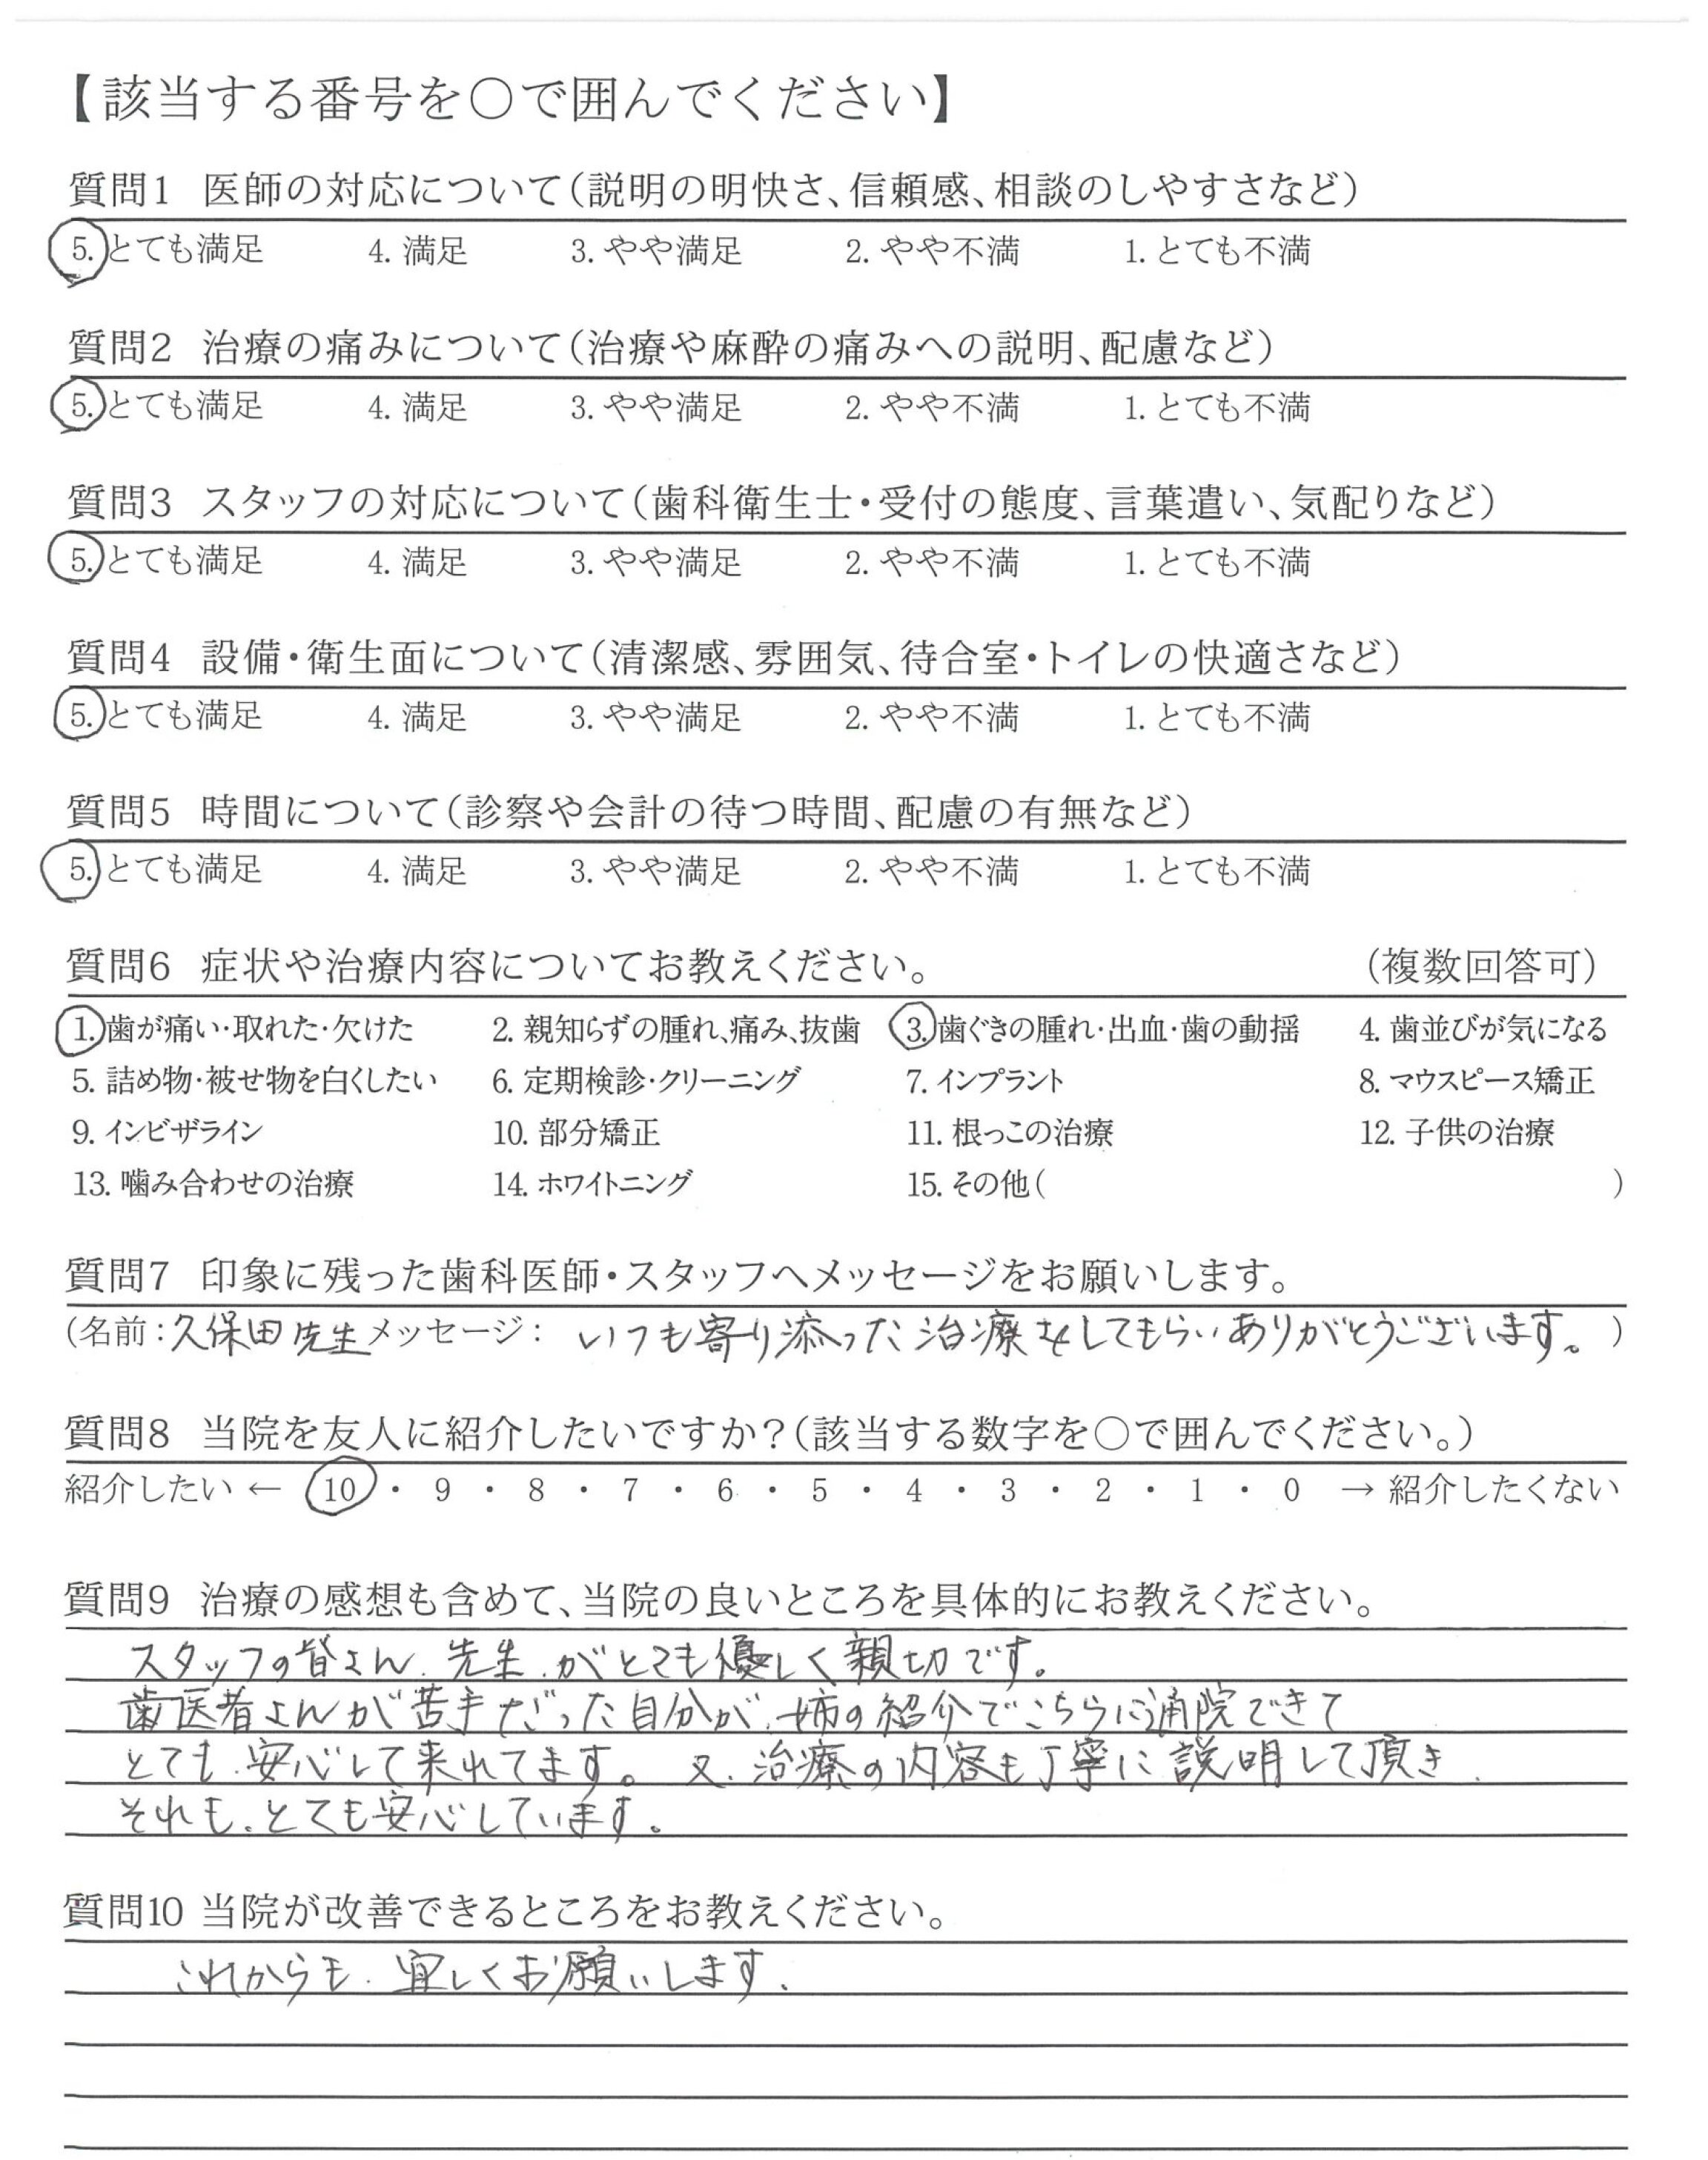 【該当する番号を〇で囲んでください】
質問1 医師の対応について(説明の明快さ、信頼感、相談のしやすさなど)
5. とても満足 4. 満足 3. やや満足 2. やや不満 1. とても不満
質問2 治療の痛みについて(治療や麻酔の痛みへの説明、配慮など)
5. とても満足 4. 満足 3. やや満足 2. やや不満 1. とても不満
質問3 スタッフの対応について(歯科衛生士・受付の態度、言葉遣い、気配りなど)
5. とても満足 4. 満足 3. やや満足 2. やや不満 1. とても不満
質問4 設備・衛生面について(清潔感、雰囲気、待合室・トイレの快適さなど)
5. とても満足 4. 満足 3. やや満足 2. やや不満 1. とても不満
質問5 時間について(診察や会計の待つ時間、配慮の有無など)
5. とても満足 4. 満足 3. やや満足 2. やや不満 1. とても不満
質問6 症状や治療内容についてお教えください。 (複数回答可)
1. 歯が痛い・取れた・欠けた 2. 親知らずの腫れ、痛み、抜歯 3. 歯ぐきの腫れ・出血・歯の動揺 4. 歯並びが気になる
5. 詰め物・被せ物を白くしたい 6. 定期検診・クリーニング 7. インプラント 8. マウスピース矯正
9. インビザライン 10. 部分矯正 11. 根っこの治療 12. 子供の治療
13. 噛み合わせの治療 14. ホワイトニング 15. その他( )
質問7 印象に残った歯科医師・スタッフへメッセージをお願いします。
(名前：久保田先生 メッセージ： いつも寄り添った治療をしてもらいありがとうございます。)
質問8 当院を友人に紹介したいですか？(該当する数字を〇で囲んでください。)
紹介したい ← 10 ・ 9 ・ 8 ・ 7 ・ 6 ・ 5 ・ 4 ・ 3 ・ 2 ・ 1 ・ 0 → 紹介したくない
質問9 治療の感想も含めて、当院の良いところを具体的にお教えください。
スタッフの皆さん、先生、がとても優しく親切です。
歯医者さんが苦手だった自分が、姉の紹介でこちらに通院できて
とても、安心して来れてます。又、治療の内容も丁寧に説明して頂き、
それも、とても安心しています。
質問10 当院が改善できるところをお教えください。
これからも、宜しくお願いします、